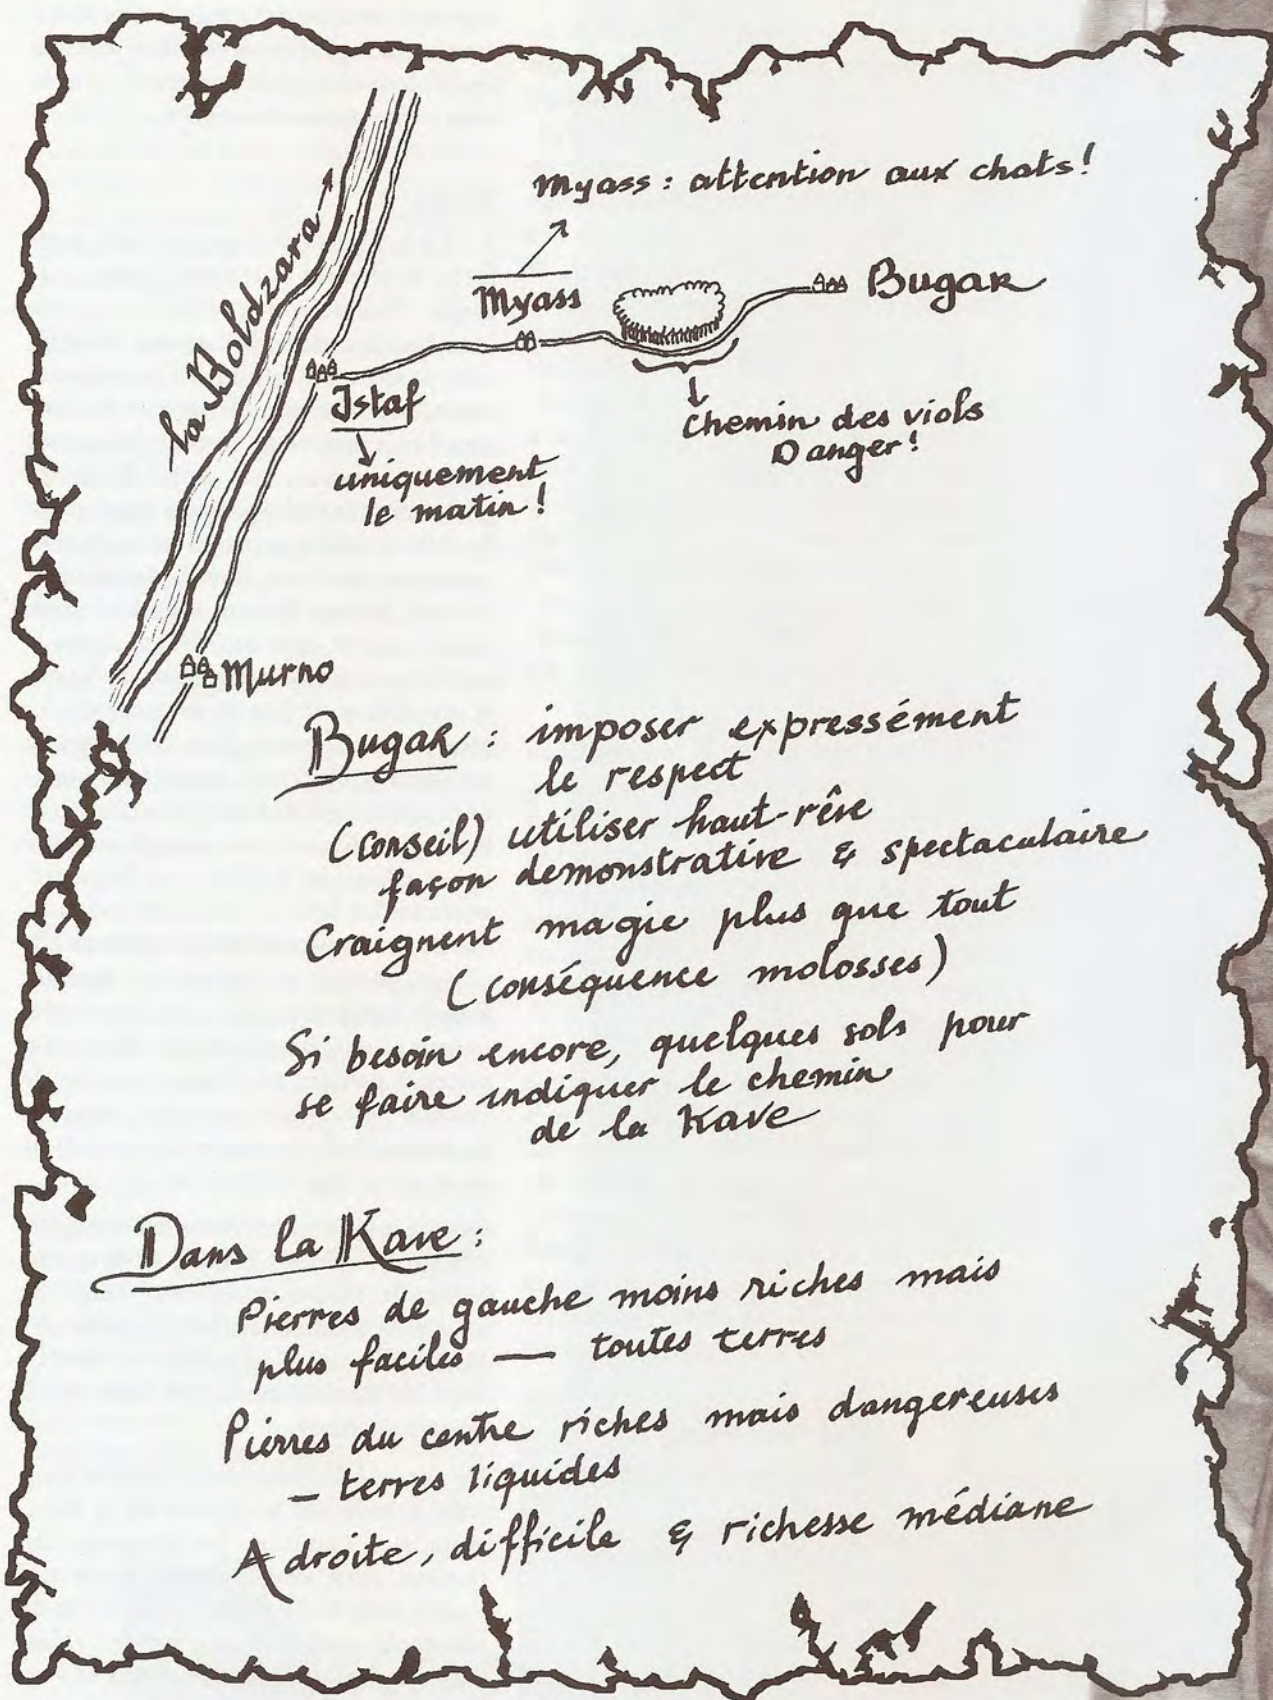 la Boldzara
Myass : attention aux chats !
Myass
Bugar
Istaf
uniquement
le matin !
Chemin des viols
Danger !
Murno
Bugar : imposer expressément
le respect
(conseil) utiliser haut-rêve
façon demonstrative & spectaculaire
Craignent magie plus que tout
(conséquence molosses)
Si besoin encore, quelques sols pour
se faire indiquer le chemin
de la Kave
Dans la Kave :
Pierres de gauche moins riches mais
plus faciles — toutes terres
Pierres du centre riches mais dangereuses
— terres liquides
A droite, difficile & richesse médiane